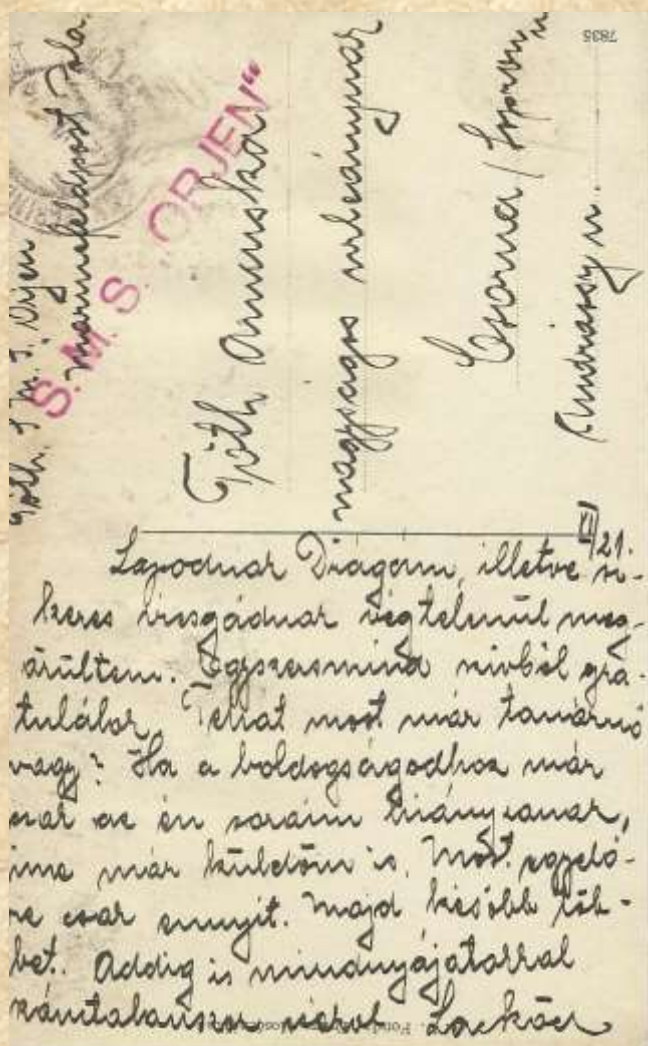 7835
Tóth. S. M. S. Orjen
Marinefeldpost Pola
S. M. S. „ORJEN“
Tóth Annuska
nagyságos urleánynak
Csorna / Sopron m
Andrássy u.
XI/21.
Lapodnak Dragám, illetve si-
keres vizsgádnak végtelenül meg-
örültem. Egyszersmind szivből gra-
tulálok. Tehát most már tanárnő
vagy? Ha a boldogságodhoz már
csak az én soraim hiányzanak,
ime már küldöm is. Most egyelő-
re csak ennyit. Majd később töb-
bet. Addig is mindnyájatokkal
számtalanszor csókol Laczkóca